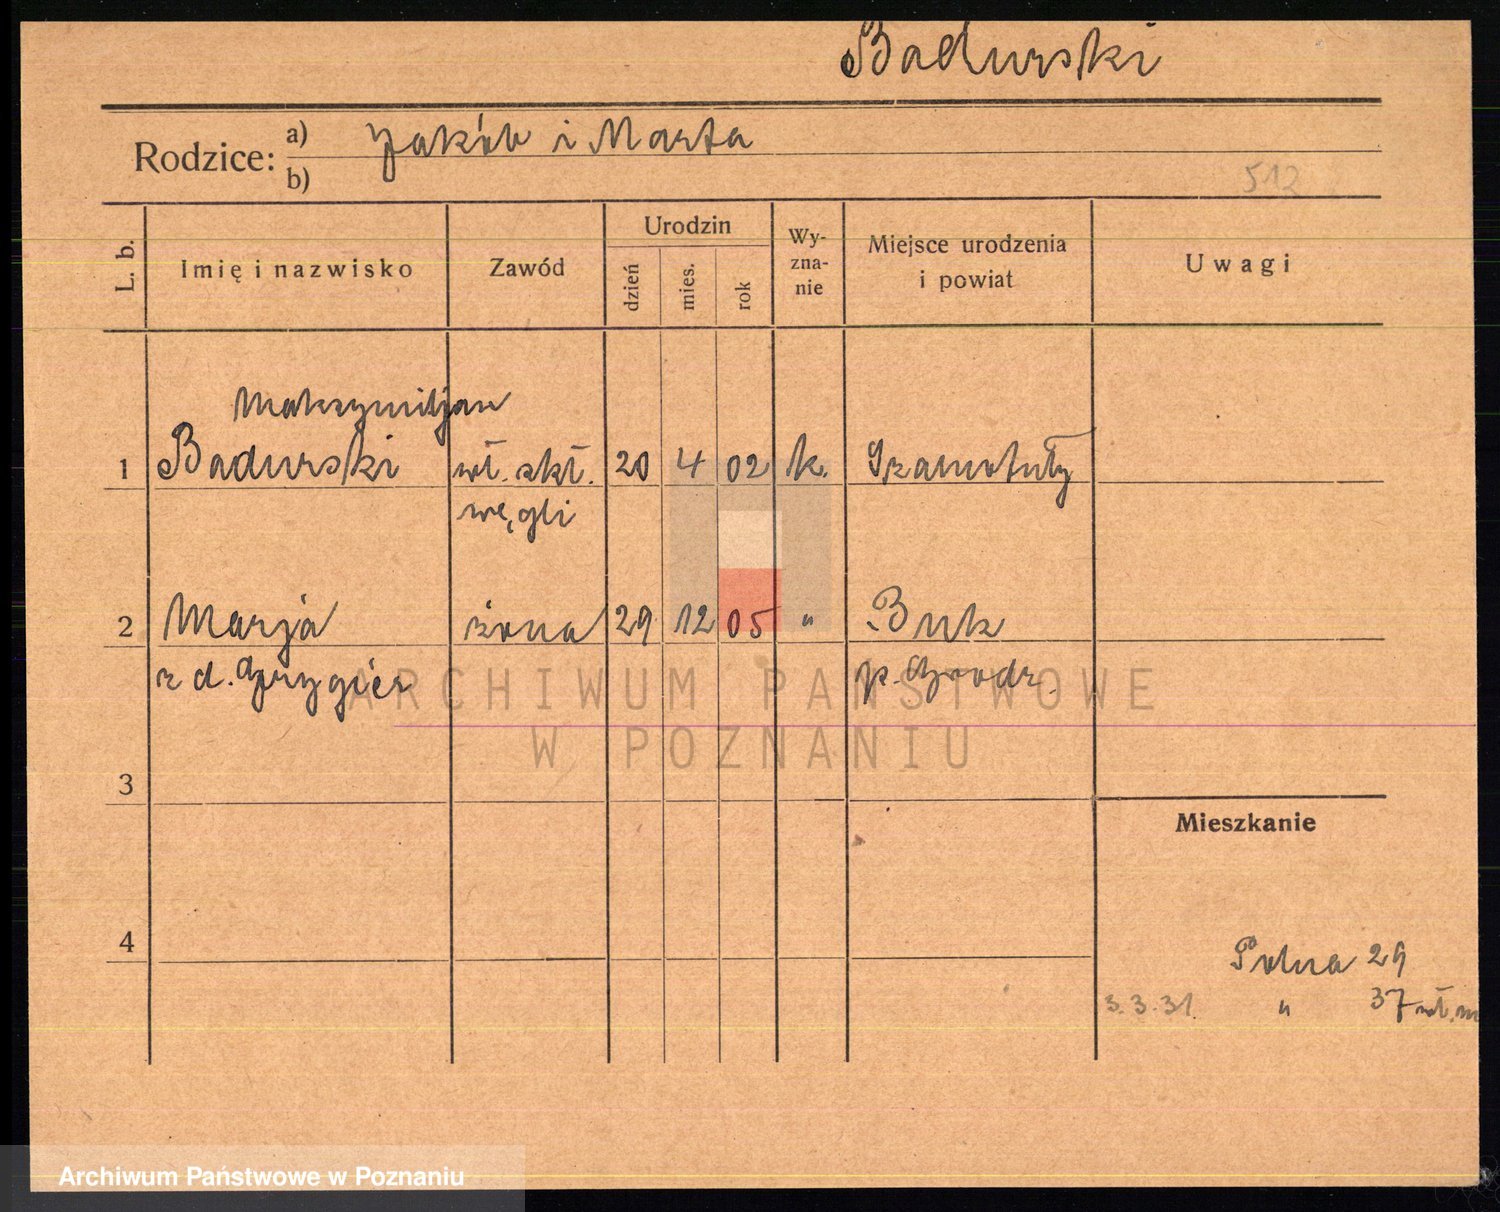 Badurski
Rodzice: a) Jakób i Marta
b)
512
L. b.
Imię i nazwisko
Zawód
Urodzin
dzień
mies.
rok
Wy-
zna-
nie
Miejsce urodzenia
i powiat
Uwagi
Maksymiljan
1 Badurski wł. skł. 20 4 02 k. Szamotuły
węgli
2 Marja żona 29 12 05 " Buk
z d. Grygier p. Grodz.
ARCHIWUM PAŃSTWOWE
W POZNANIU
3
Mieszkanie
4
Polna 29
3.3.31. " 37 wł. m
Archiwum Państwowe w Poznaniu